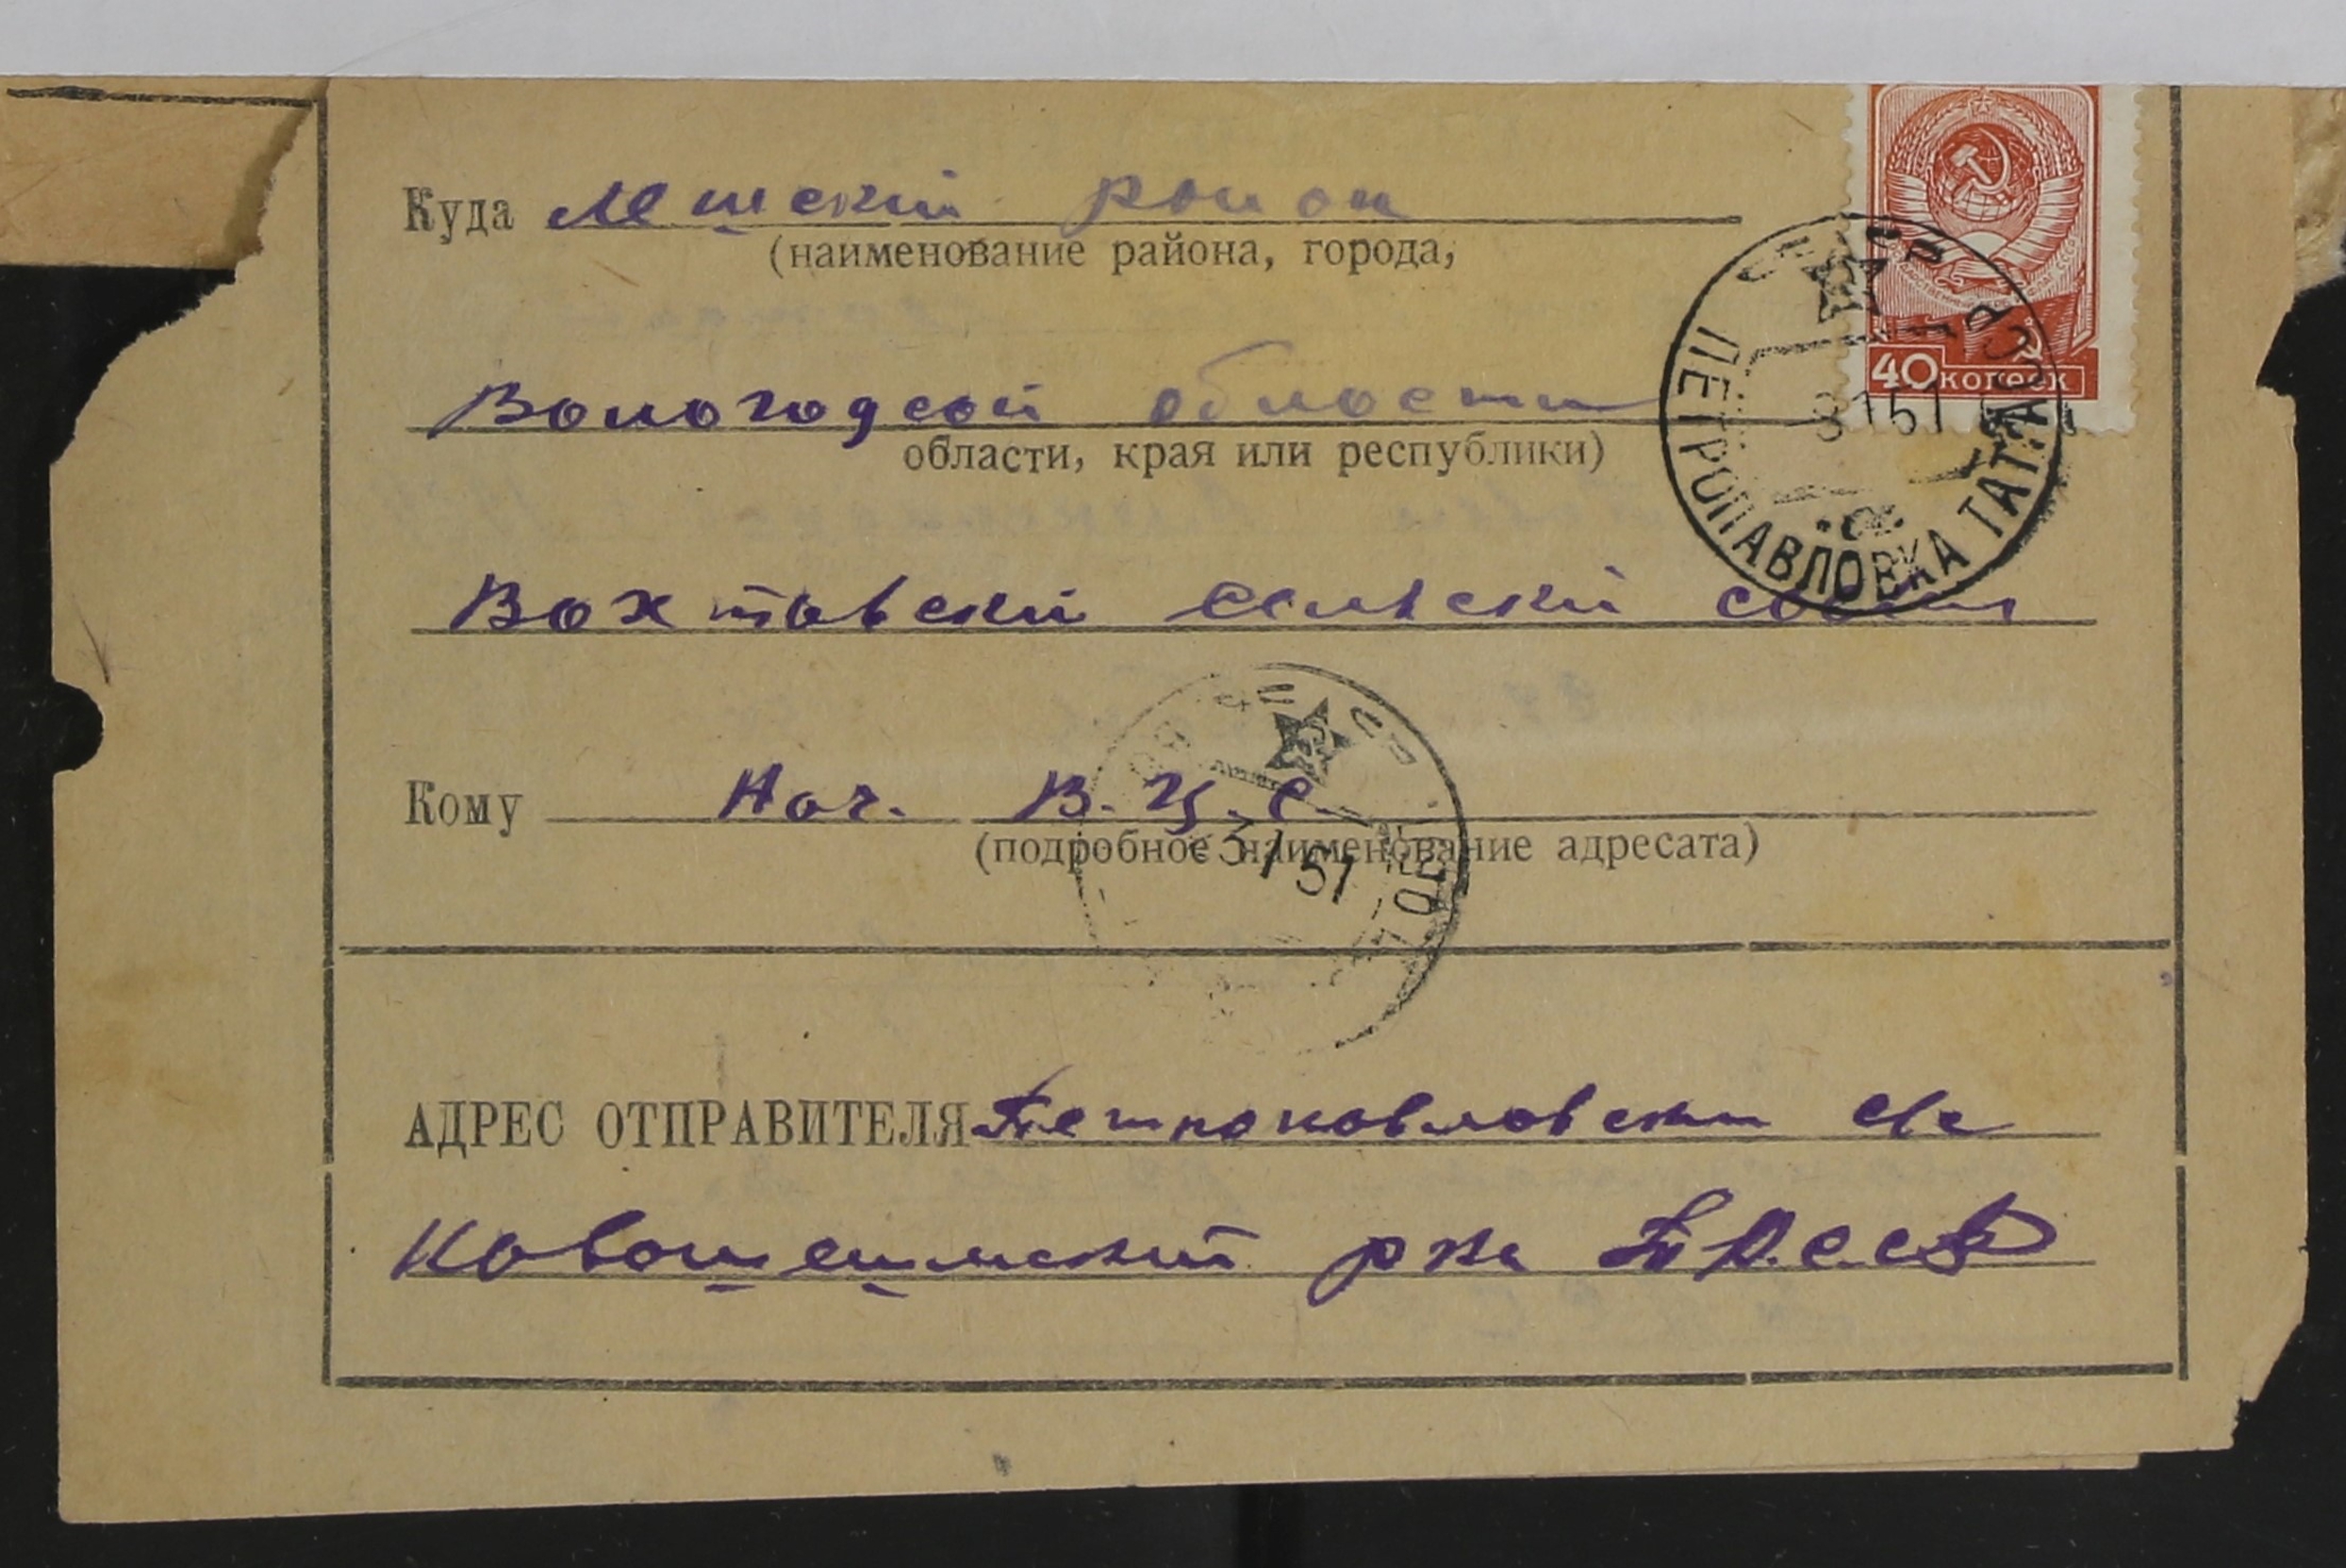 Куда Мшский район
(наименование района, города,
Вологодсой области
области, края или республики)
Вохтовский сельский совет
Кому Нач. В.У.С.
(подробное наименование адресата)
АДРЕС ОТПРАВИТЕЛЯ Петропавловский с/с
Новошешмский рна Т.А.С.С.Р
40 КОПЕЕК
ПЕТРОПАВЛОВКА ТАТАССР
3 1 51